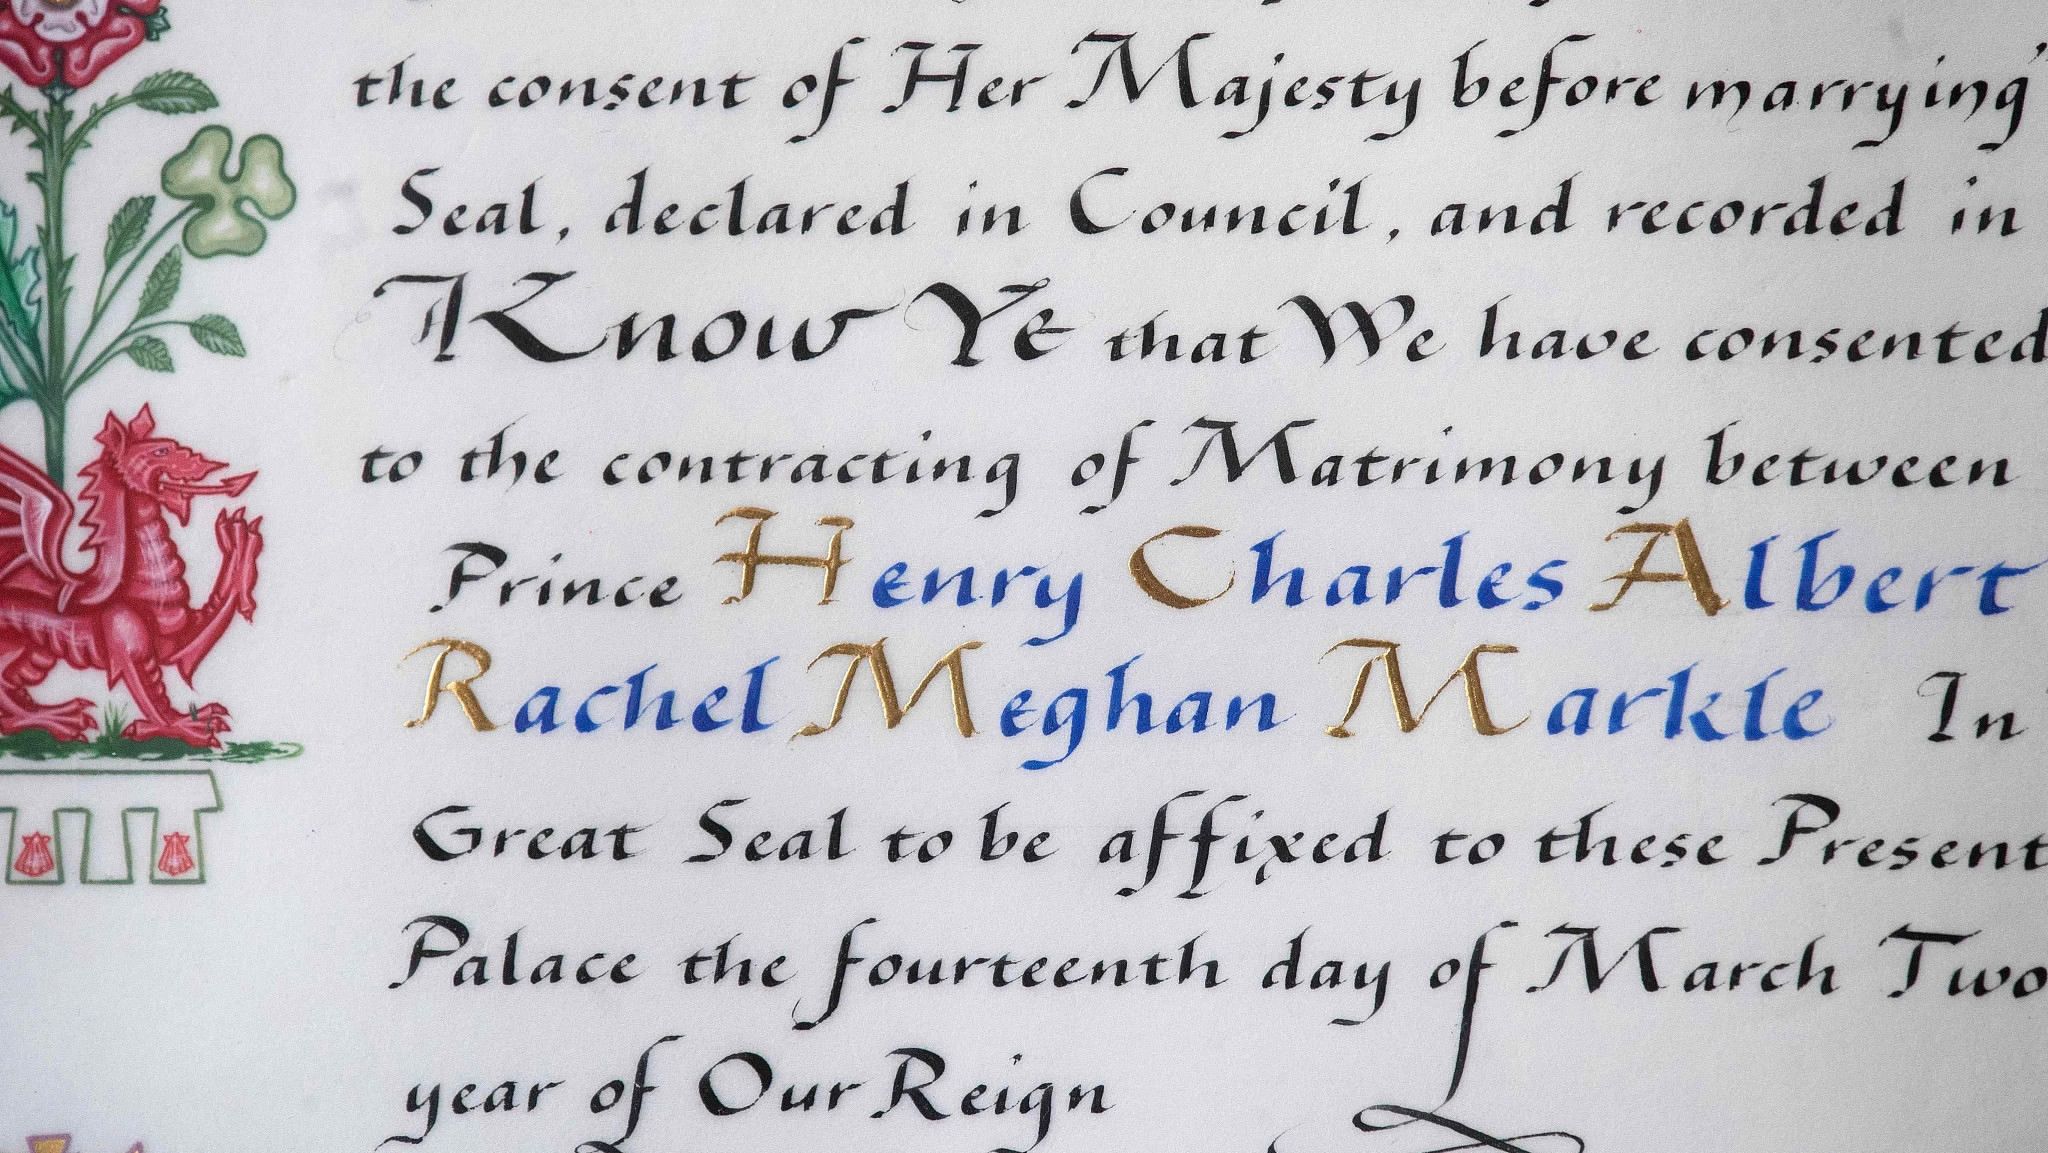 the consent of Her Majesty before marrying
Seal, declared in Council, and recorded in
Know Ye that We have consented
to the contracting of Matrimony between
Prince Henry Charles Albert
Rachel Meghan Markle In
Great Seal to be affixed to these Present
Palace the fourteenth day of March Two
year of Our Reign